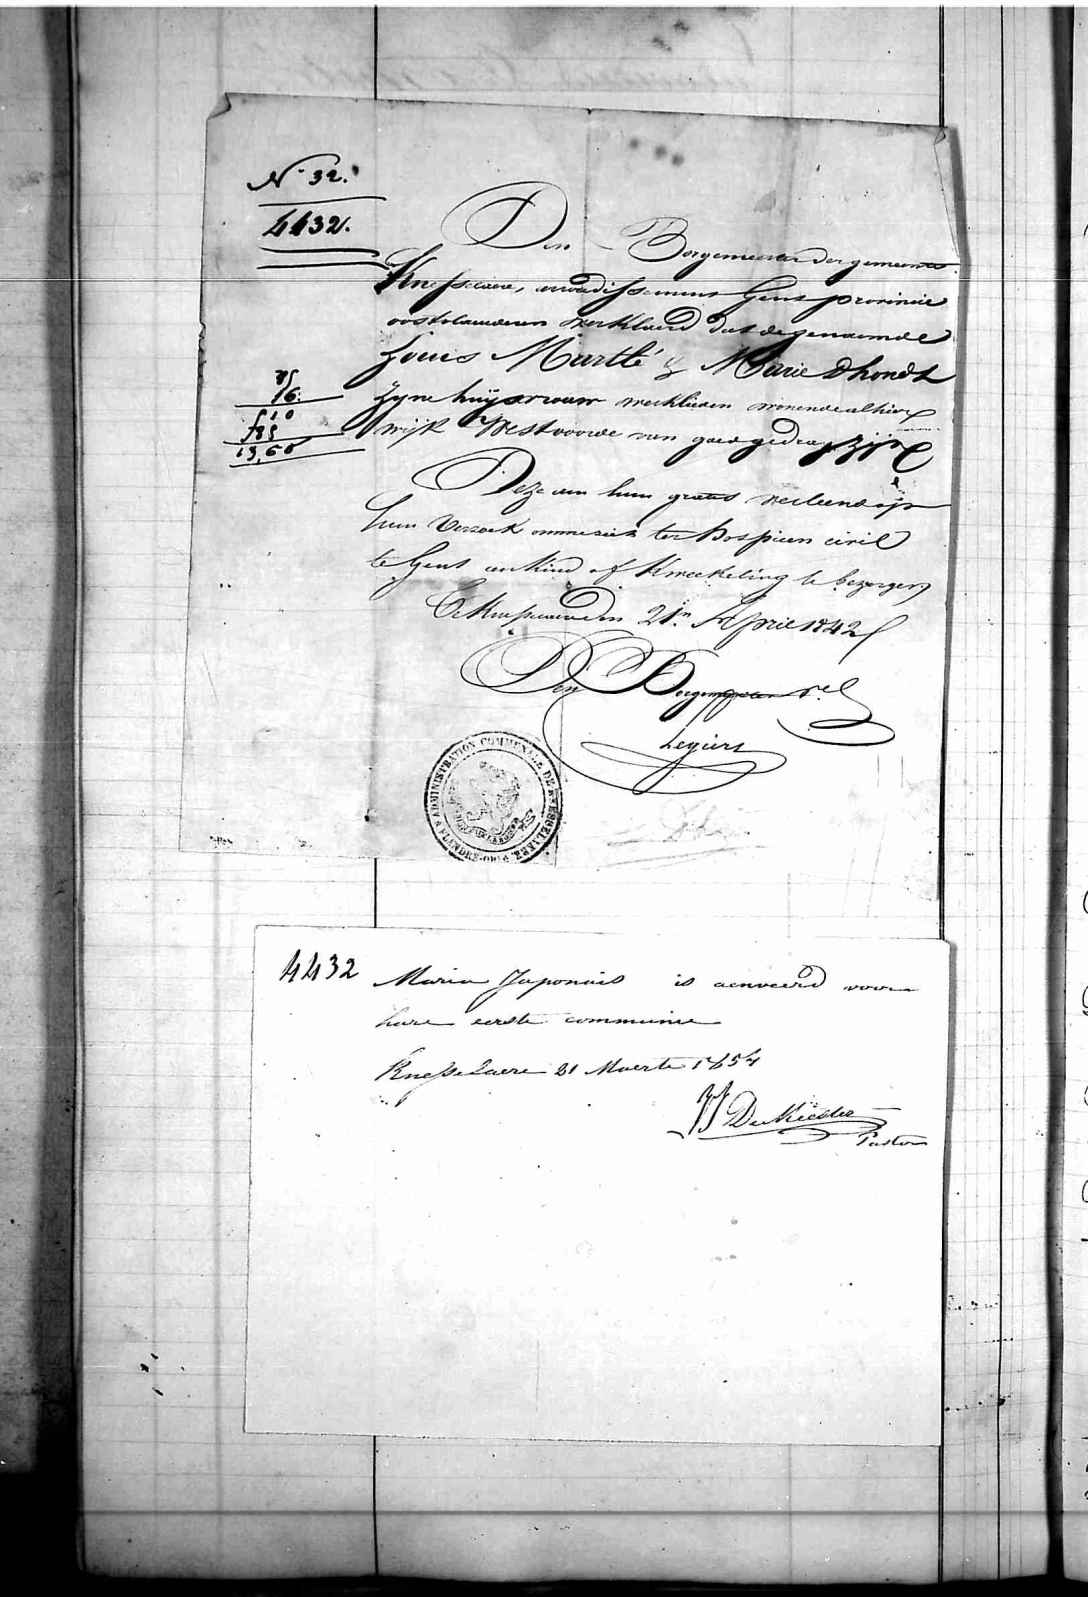 N° 32.
4432.
Den Borgemeester der gemeente
Knesselaere, arrondissement Gent provincie
oostvlaenderen verklaerd dat de genaemde
Louis Martlé & Marie Dhondt
zyne huijsvrouw werklieden wonende alhier
wijk Westvoorde van goed gedrag zijn
76.
f 10
13,60
Deze aan hun gratis verleend op
hun Verzoek omme uit ter hospicen civil
te Gent een Kind of Kweekeling te bezorgen
Te Knesselaere den 21n April 1842
Den Borgemeester
Legiers
ADMINISTRATION COMMUNALE DE KNESSELAERE
FLANDRE-ORle
4432 Maria Japonais is aenveerd voor
hare eerste communie
Knesselaere 21 Maerte 1854
JJ De Meester
Pastor